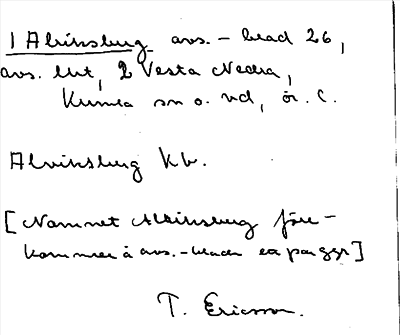 1 Alvinsburg avs. – blad 26,
avs. litt, 2 Vesta Nedra,
Kumla sn o. hd, ör. C.
Alvinsburg Kb.
[Namnet Alvinsburg före-
kommer å avs.-bladen ett par ggr]
T. Ericsson.